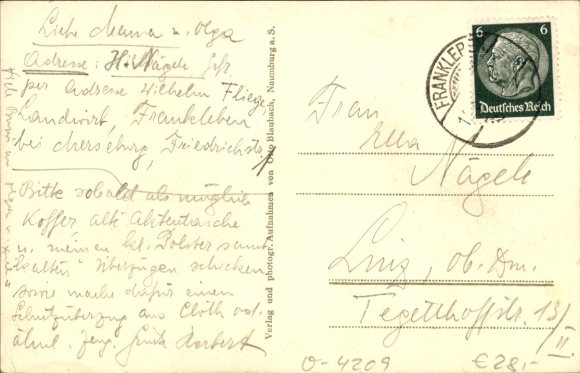 Liebe Mama u. Olga
Adresse: H. Nägele
per Adresse Wilhelm Fliege,
Landwirt, Frankleben
bei Merseburg, Friedrichstr.
Bitte sobald als möglich
Koffer alte Aktentasche
u. meinen kl. Polster samt
"kalten" Überzügen schicken
sowie mache dafür einen
Schutzüberzug aus Cloth od.
ähnl. Herbert
Verlag und photogr. Aufnahmen von Otto Blaubach, Naumburg a. S.
FRANKLEB
6 6
Deutsches Reich
Frau
Ella
Nägele
Linz, ob. Don.
Tegetthoffstr. 13/
II.
O-4209
€28,-